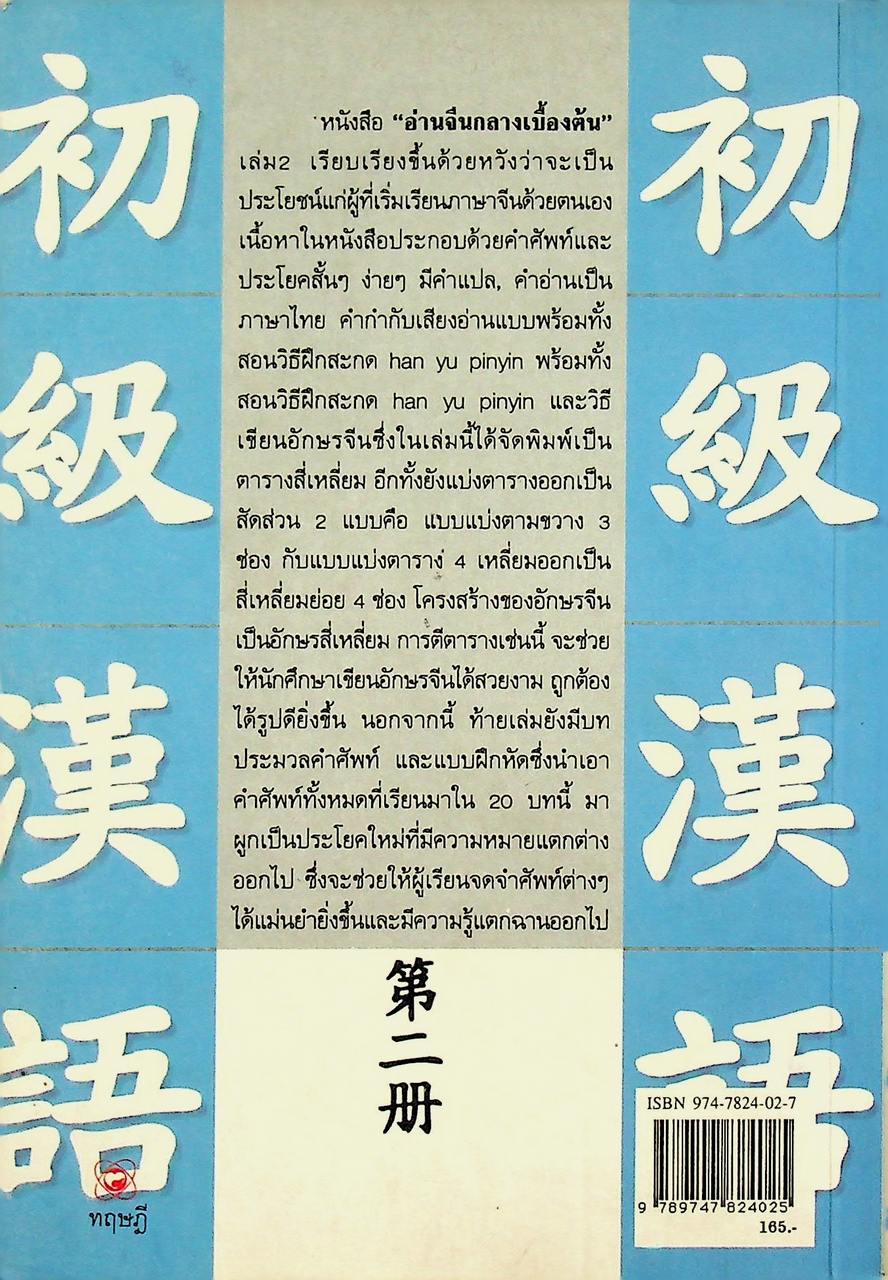 初級漢語
หนังสือ “อ่านจีนกลางเบื้องต้น”
เล่ม2 เรียบเรียงขึ้นด้วยหวังว่าจะเป็น
ประโยชน์แก่ผู้ที่เริ่มเรียนภาษาจีนด้วยตนเอง
เนื้อหาในหนังสือประกอบด้วยคำศัพท์และ
ประโยคสั้นๆ ง่ายๆ มีคำแปล, คำอ่านเป็น
ภาษาไทย คำกำกับเสียงอ่านแบบพร้อมทั้ง
สอนวิธีฝึกสะกด han yu pinyin พร้อมทั้ง
สอนวิธีฝึกสะกด han yu pinyin และวิธี
เขียนอักษรจีนซึ่งในเล่มนี้ได้จัดพิมพ์เป็น
ตารางสี่เหลี่ยม อีกทั้งยังแบ่งตารางออกเป็น
สัดส่วน 2 แบบคือ แบบแบ่งตามขวาง 3
ช่อง กับแบบแบ่งตาราง 4 เหลี่ยมออกเป็น
สี่เหลี่ยมย่อย 4 ช่อง โครงสร้างของอักษรจีน
เป็นอักษรสี่เหลี่ยม การตีตารางเช่นนี้ จะช่วย
ให้นักศึกษาเขียนอักษรจีนได้สวยงาม ถูกต้อง
ได้รูปดียิ่งขึ้น นอกจากนี้ ท้ายเล่มยังมีบท
ประมวลคำศัพท์ และแบบฝึกหัดซึ่งนำเอา
คำศัพท์ทั้งหมดที่เรียนมาใน 20 บทนี้ มา
ผูกเป็นประโยคใหม่ที่มีความหมายแตกต่าง
ออกไป ซึ่งจะช่วยให้ผู้เรียนจดจำศัพท์ต่างๆ
ได้แม่นยำยิ่งขึ้นและมีความรู้แตกฉานออกไป
第二册
初級漢語
ทฤษฎี
ISBN 974-7824-02-7
9 789747 824025
165.-